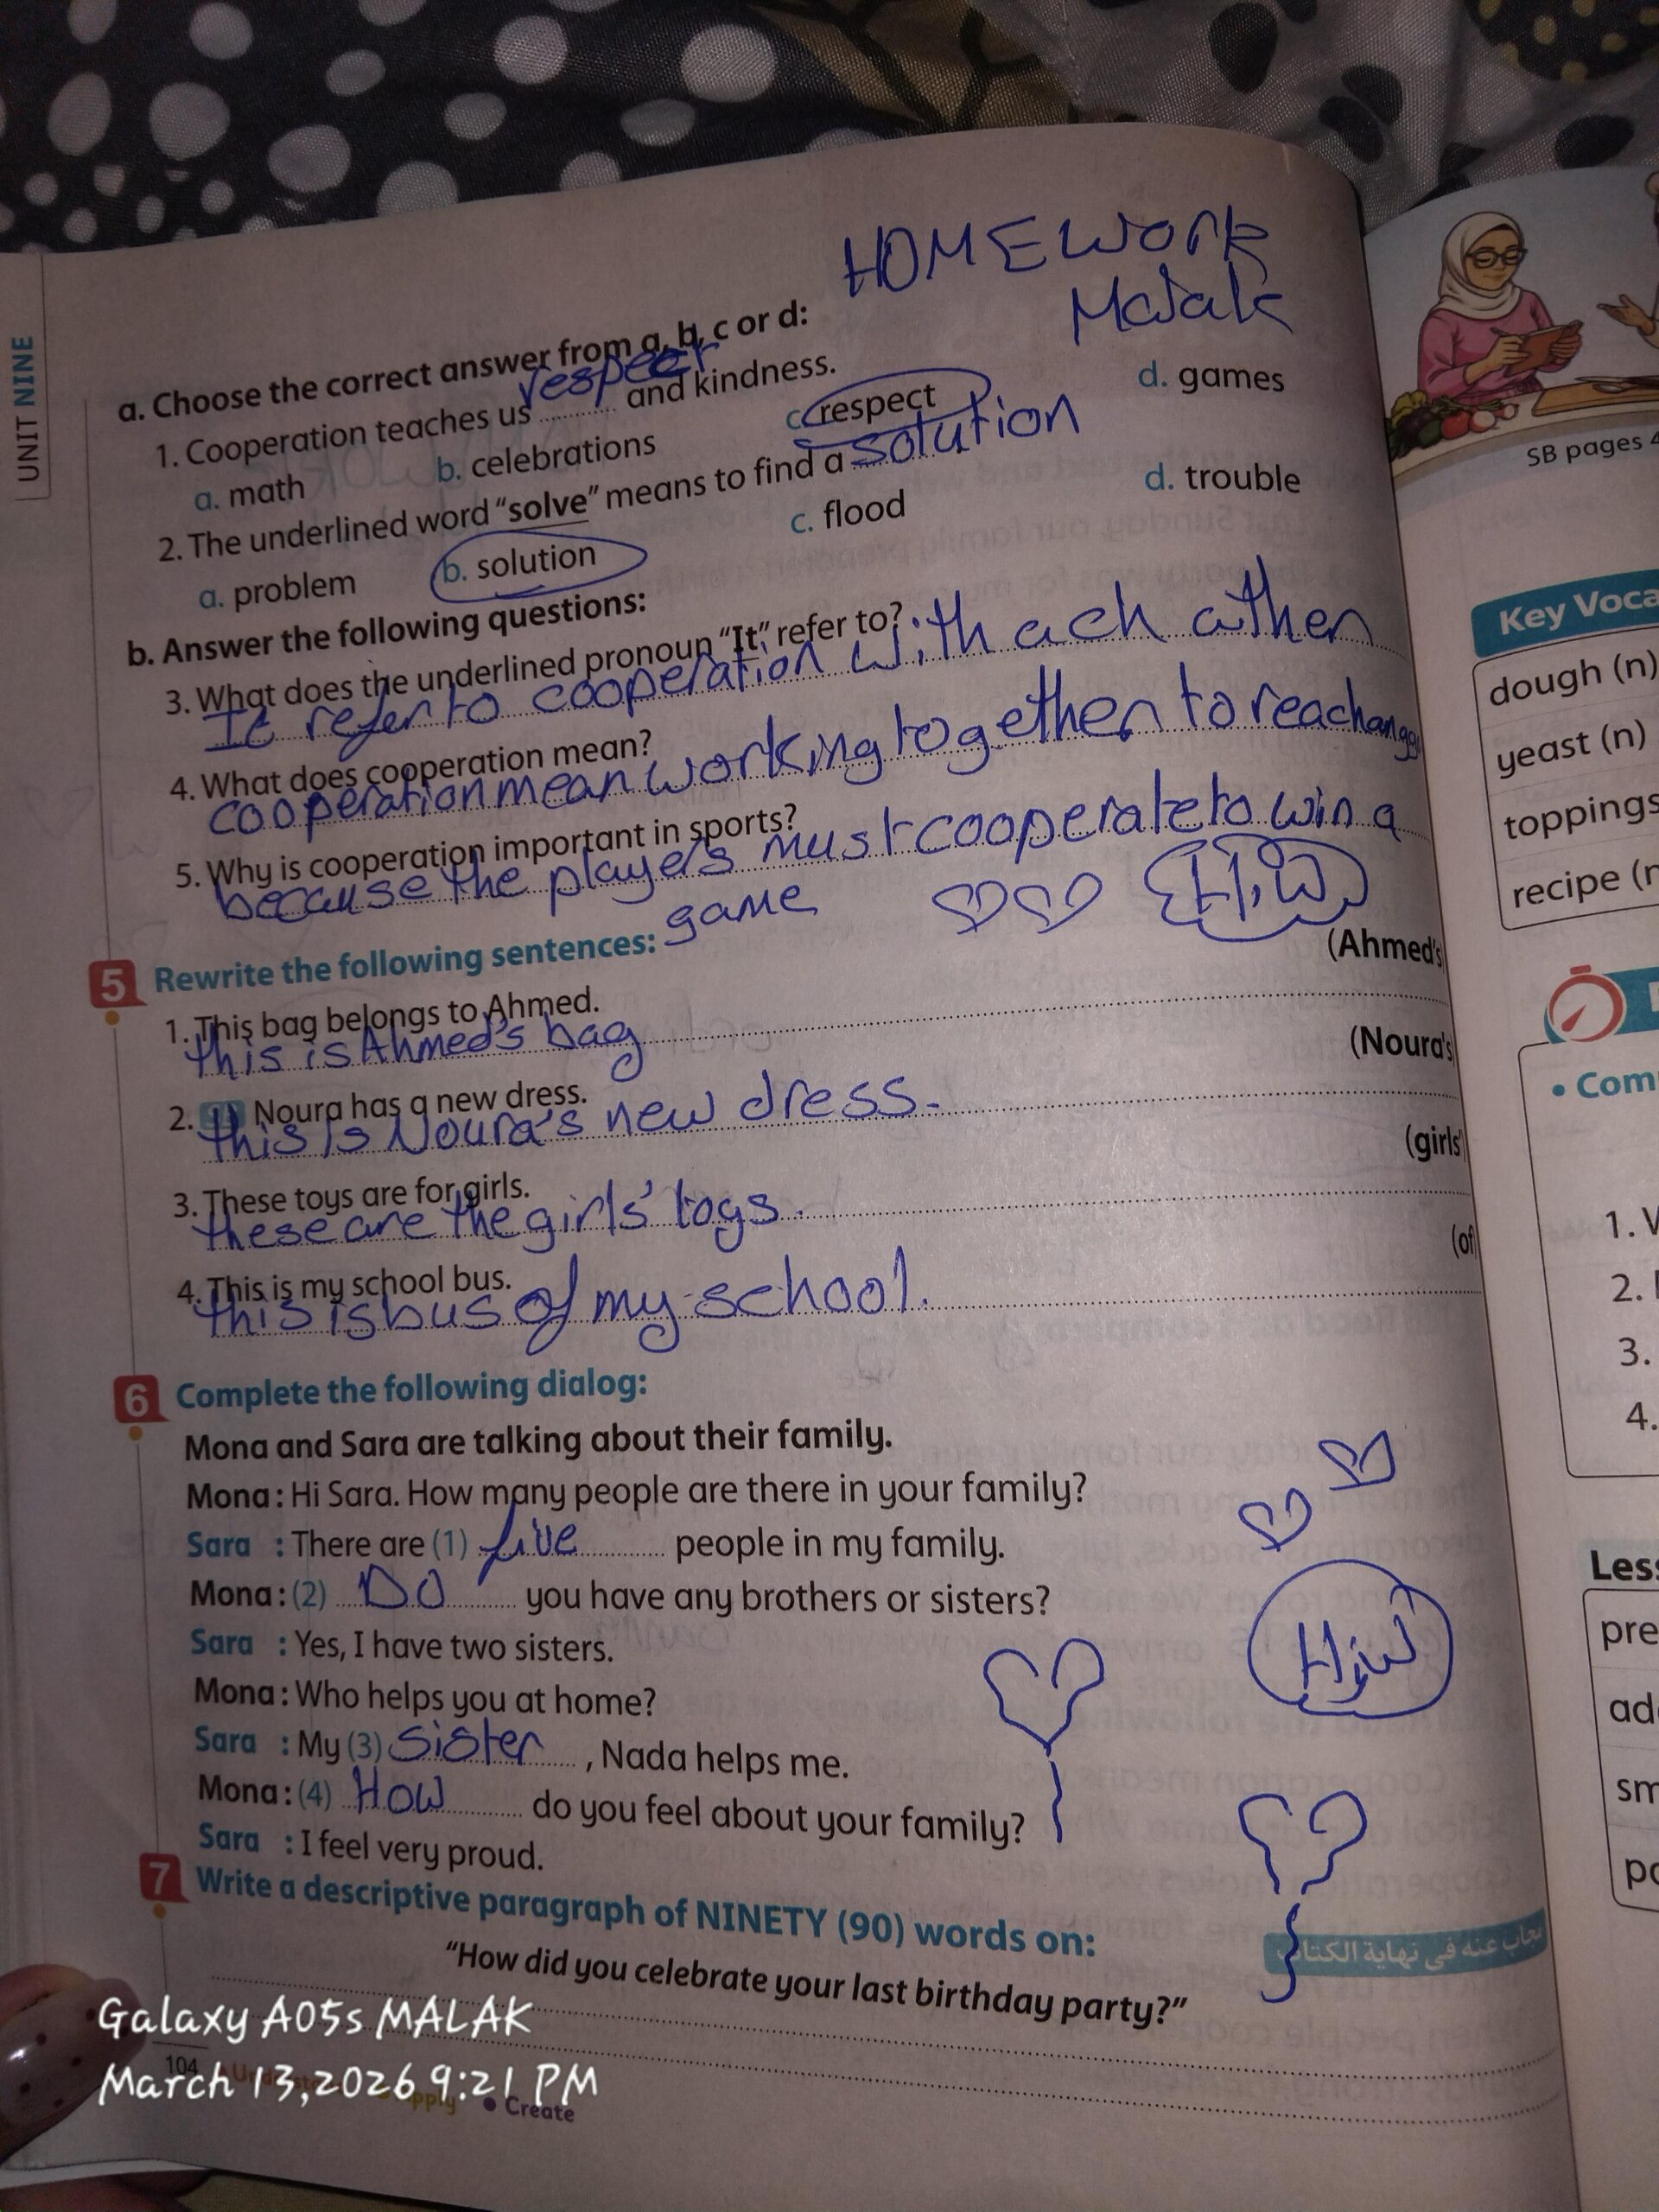 HOMEWORK
Malak
UNIT NINE
a. Choose the correct answer from a, b, c or d:
1. Cooperation teaches us respect and kindness.
a. math b. celebrations c. respect d. games
2. The underlined word "solve" means to find a solution
a. problem b. solution c. flood d. trouble
b. Answer the following questions:
3. What does the underlined pronoun "It" refer to?
It refer to cooperation with each other
4. What does cooperation mean?
cooperation mean working together to reach
5. Why is cooperation important in sports?
because the players must cooperate to win a
game
H.W
5 Rewrite the following sentences:
1. This bag belongs to Ahmed. (Ahmed's
this is Ahmed's bag
2. Noura has a new dress. (Noura's
this is Noura's new dress.
3. These toys are for girls. (girls'
these are the girls' togs.
4. This is my school bus. (of
this is bus of my school.
6 Complete the following dialog:
Mona and Sara are talking about their family.
Mona: Hi Sara. How many people are there in your family?
Sara : There are (1) five people in my family.
Mona: (2) DO you have any brothers or sisters?
Sara : Yes, I have two sisters.
Mona: Who helps you at home?
Sara : My (3) sister , Nada helps me.
Mona: (4) How do you feel about your family?
Sara : I feel very proud.
H.W
7 Write a descriptive paragraph of NINETY (90) words on:
يجاب عنه في نهاية الكتاب
"How did you celebrate your last birthday party?"
104
• Create
Galaxy A05s MALAK
March 13, 2026 9:21 PM
SB pages 4
Key Voca
dough (n)
yeast (n)
toppings
recipe (n
• Com
1.
2.
3.
4.
Less
pre
ad
sm